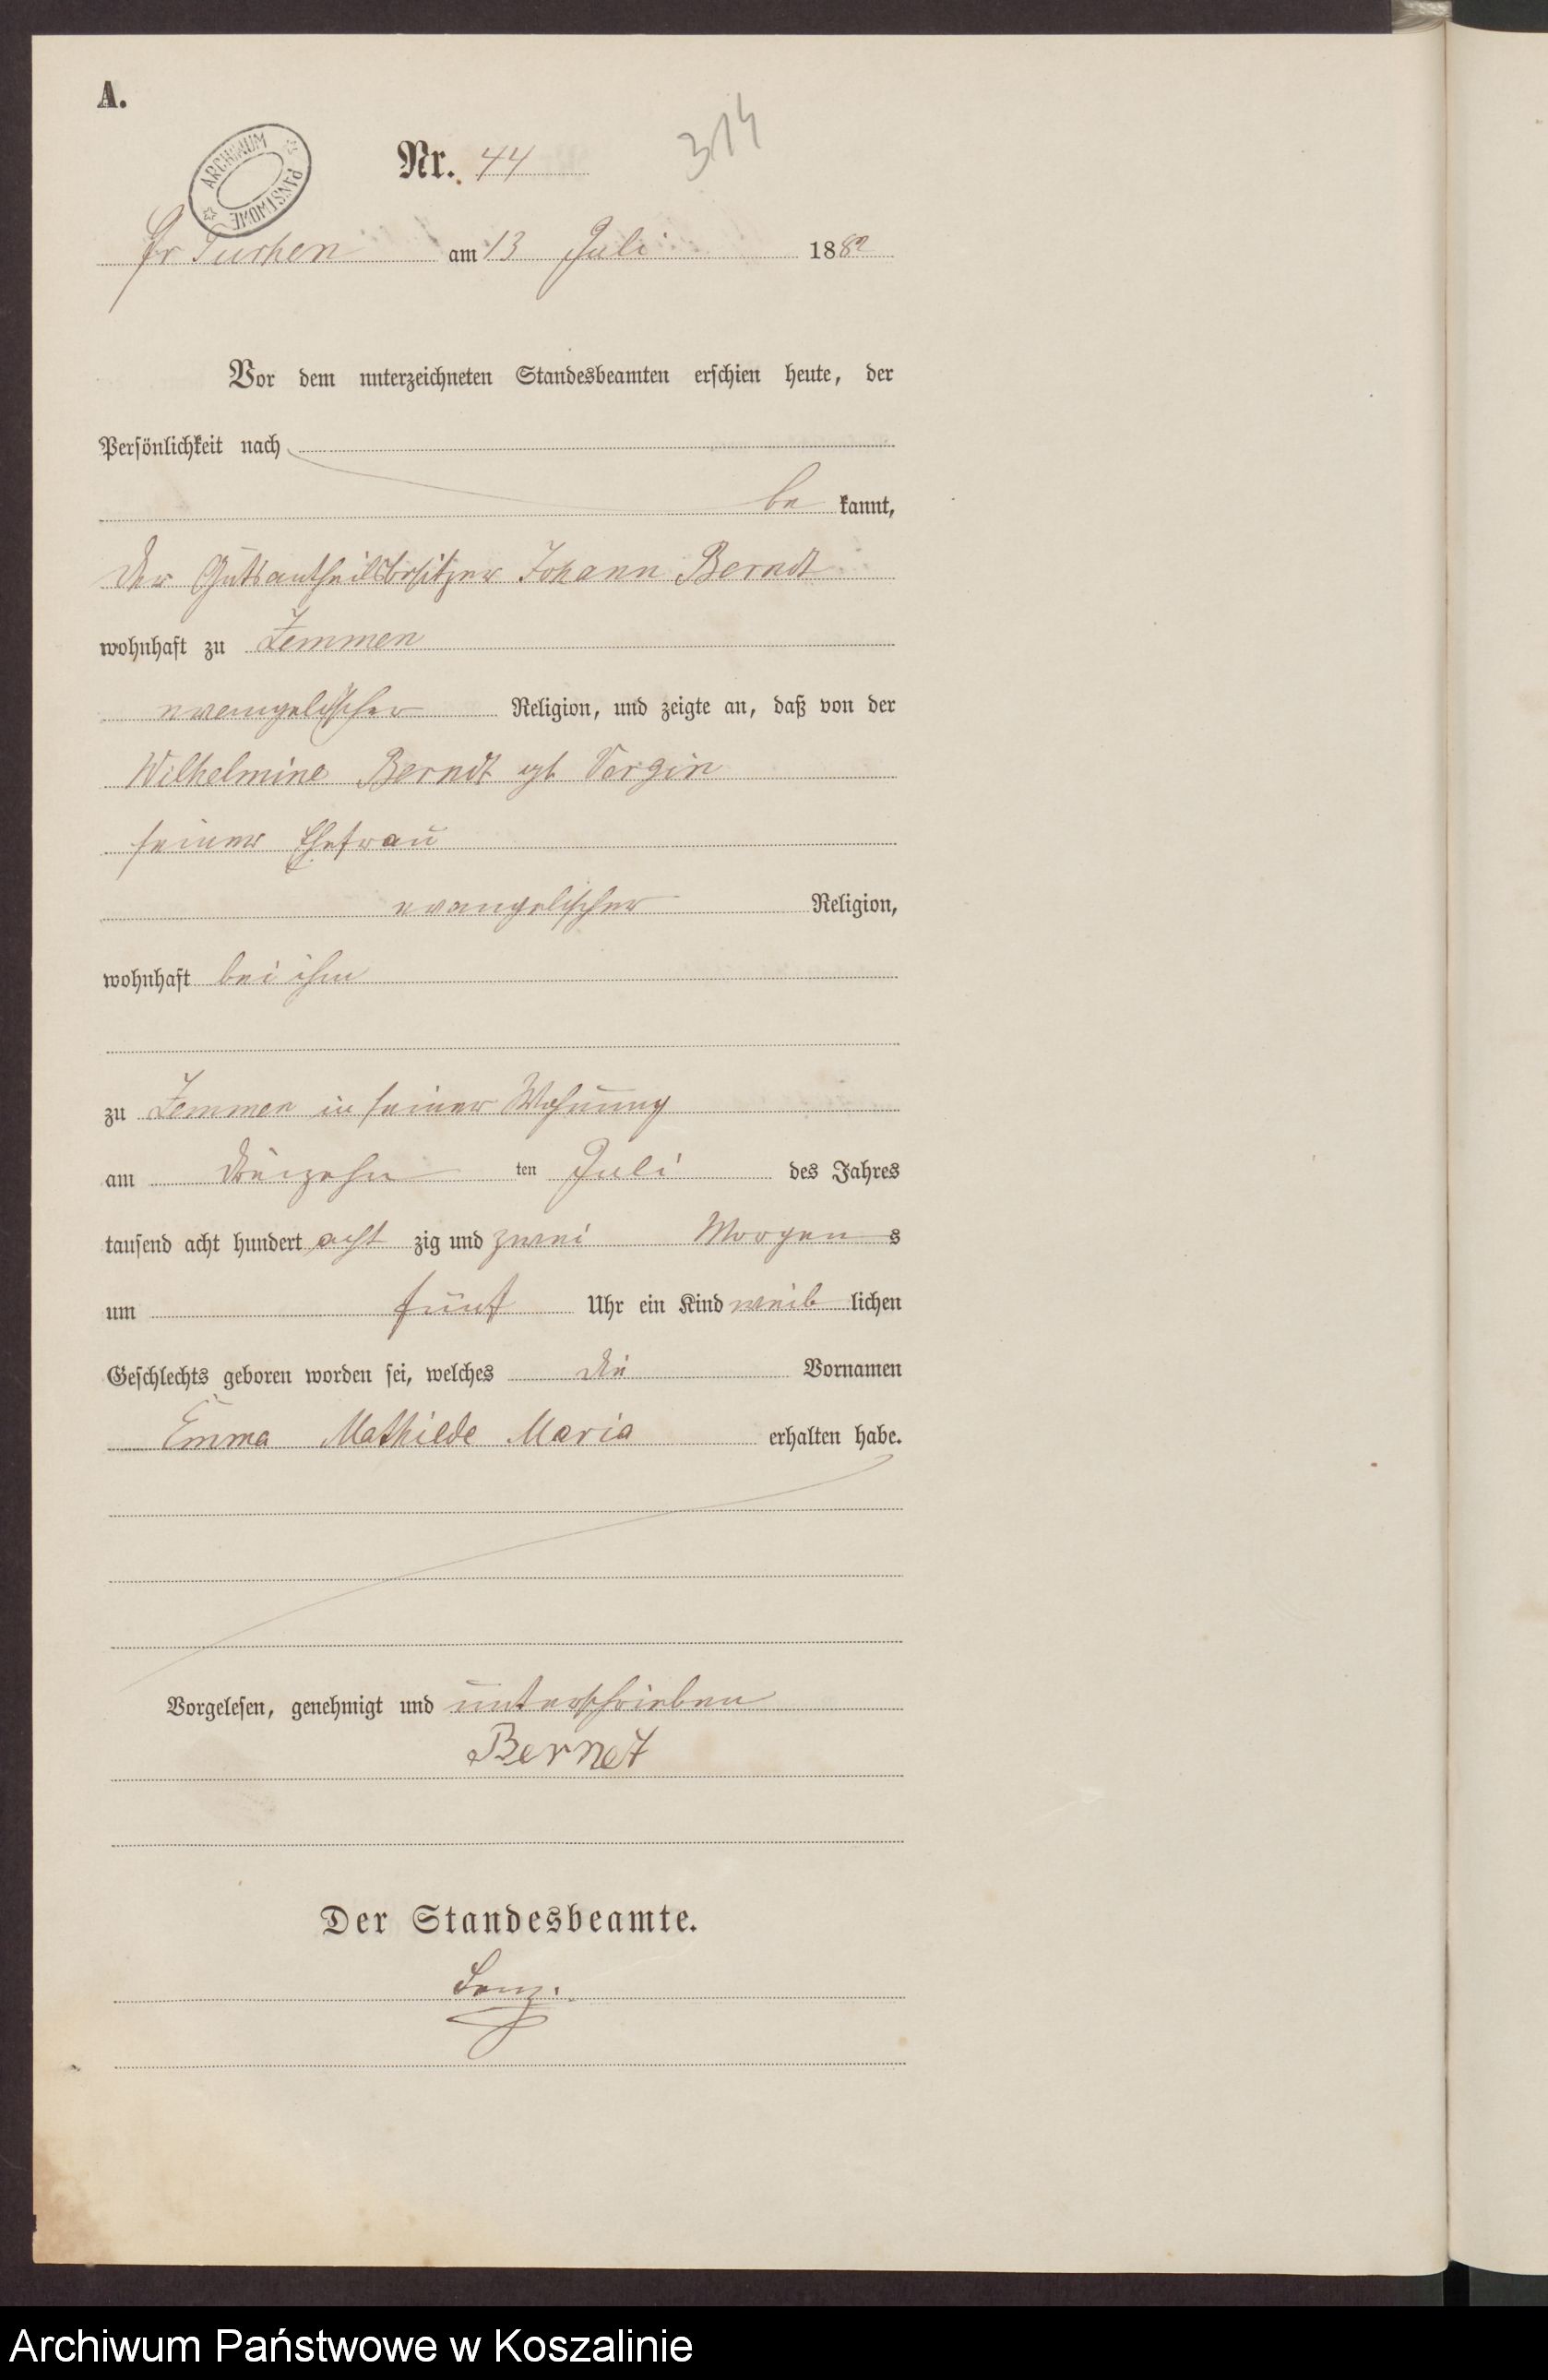 A.
ARCHIWUM PAŃSTWOWE
Nr. 44
314
Gr Tuchen am 13 Juli 1882
Vor dem unterzeichneten Standesbeamten erschien heute, der
Persönlichkeit nach
be kannt,
der Gutsantheilsbesitzer Johann Berndt
wohnhaft zu Zemmen
evangelischer Religion, und zeigte an, daß von der
Wilhelmine Berndt gb Vergin
seiner Ehefrau
evangelischer Religion,
wohnhaft bei ihm
zu Zemmen in seiner Wohnung
am dreizehn ten Juli des Jahres
tausend acht hundert acht zig und zwei Morgens
um fünf Uhr ein Kind weib lichen
Geschlechts geboren worden sei, welches die Vornamen
Emma Mathilde Maria erhalten habe.
Vorgelesen, genehmigt und unterschrieben
Berndt
Der Standesbeamte.
Archiwum Państwowe w Koszalinie